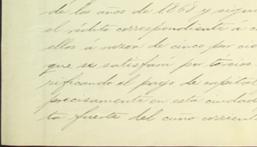 de los años de 1868 y sigui
el rédito correspondiente á c
ellos á razon de cinco por cie
que se satisfará por tercios
rificando el pago de capital
precisamente en esta ciudad
ta fuerte del cuño corriente